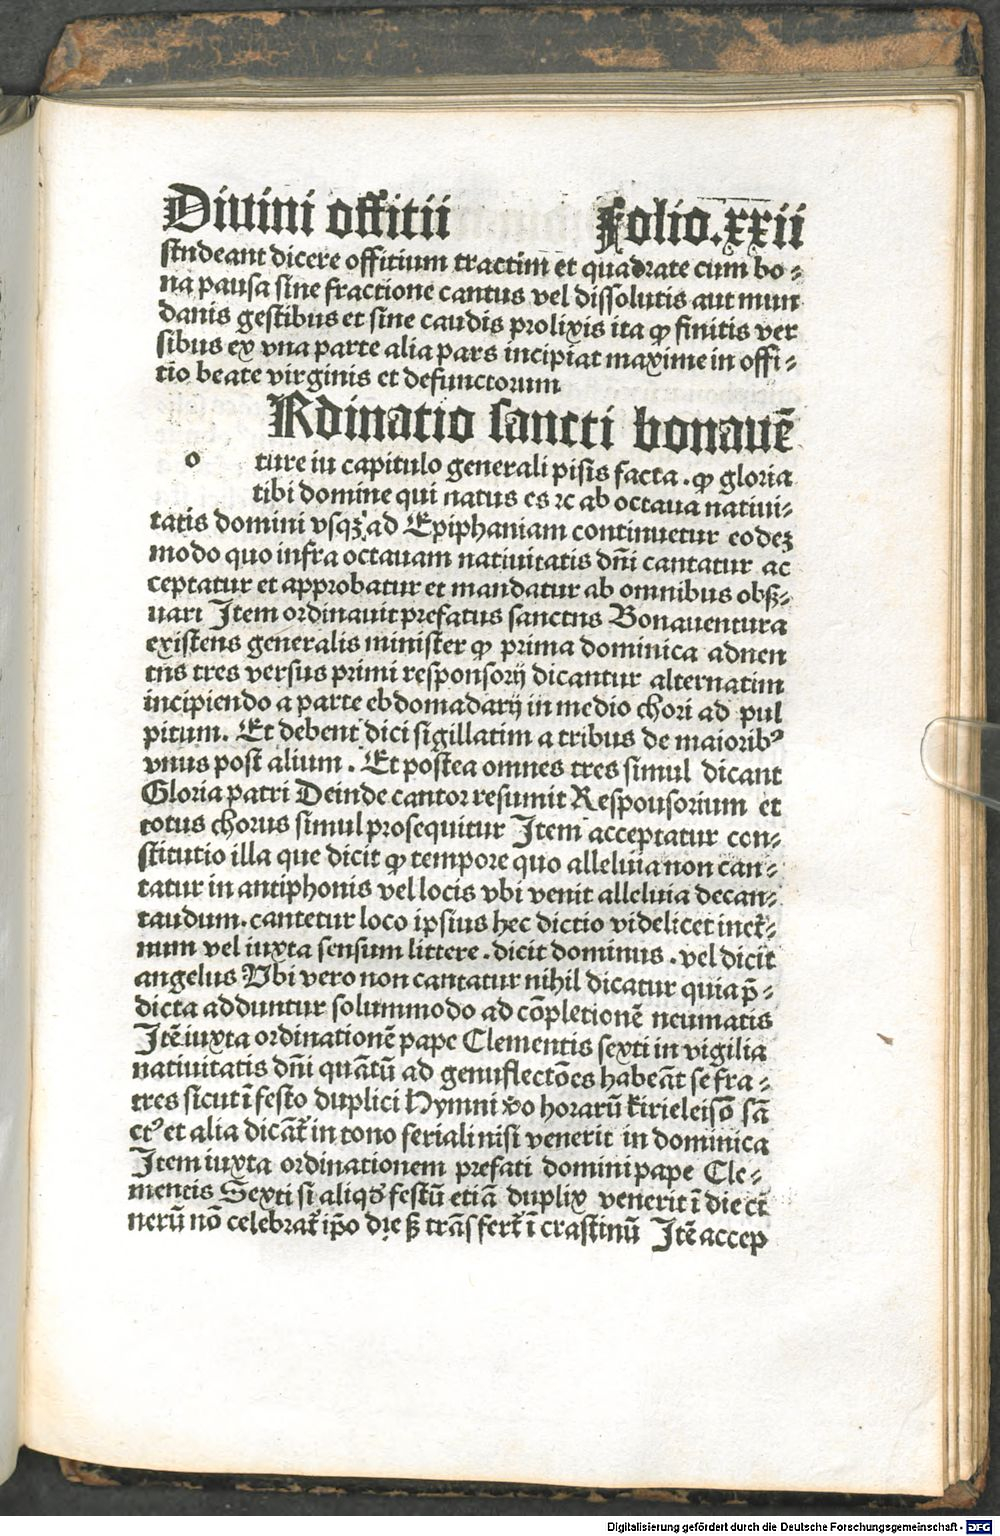 Diuini offitii Folio.xxii
studeant dicere offitium tractim et quadrate cum bo-
na pausa sine fractione cantus vel dissolutis aut mun
danis gestibus et sine caudis prolixis ita ꝙ finitis ver
sibus ex vna parte alia pars incipiat maxime in offi-
tio beate virginis et defunctorum
Rdinatio sancti bonauē
o ture in capitulo generali pisis facta . ꝙ gloria
tibi domine qui natus es ⁊c ab octaua natiui-
tatis domini vsqꝫ ad Epiphaniam continuetur eodeꝫ
modo quo infra octauam natiuitatis dn̄i cantatur ac
ceptatur et approbatur et mandatur ab omnibus obẜ-
uari Item ordinauit prefatus sanctus Bonauentura
existens generalis minister ꝙ prima dominica aduen
tus tres versus primi responsorij dicantur alternatim
incipiendo a parte ebdomadarij in medio chori ad pul
pitum. Et debent dici sigillatim a tribus de maioribꝰ
vnus post alium . Et postea omnes tres simul dicant
Gloria patri Deinde cantor resumit Responsorium et
totus chorus simul prosequitur Item acceptatur con-
stitutio illa que dicit ꝙ tempore quo alleluia non can-
tatur in antiphonis vel locis vbi venit alleluia decan-
taudum. cantetur loco ipsius hec dictio videlicet inet̉-
num vel iuxta sensum littere . dicit dominus . vel dicit
angelus Vbi vero non cantatur nihil dicatur quia p̄-
dicta adduntur solummodo ad cōpletionē neumatis
Itē iuxta ordinationē pape Clementis sexti in vigilia
natiuitatis dn̄i quātū ad genuflectōes habeāt se fra-
tres sicut ī festo duplici Hymni v̉o horarū kirieleisō sā
ctꝰ et alia dicāt̉ in tono feriali nisi venerit in dominica
Item iuxta ordinationem prefati domini pape Cle-
mentis Sexti si aliqd̓ festū etiā duplix venerit ī die ci
nerū nō celebrat̉ ip̄o die ẜ trāsfert̉ ī crastinū Itē accep
Digitalisierung gefördert durch die Deutsche Forschungsgemeinschaft - DFG